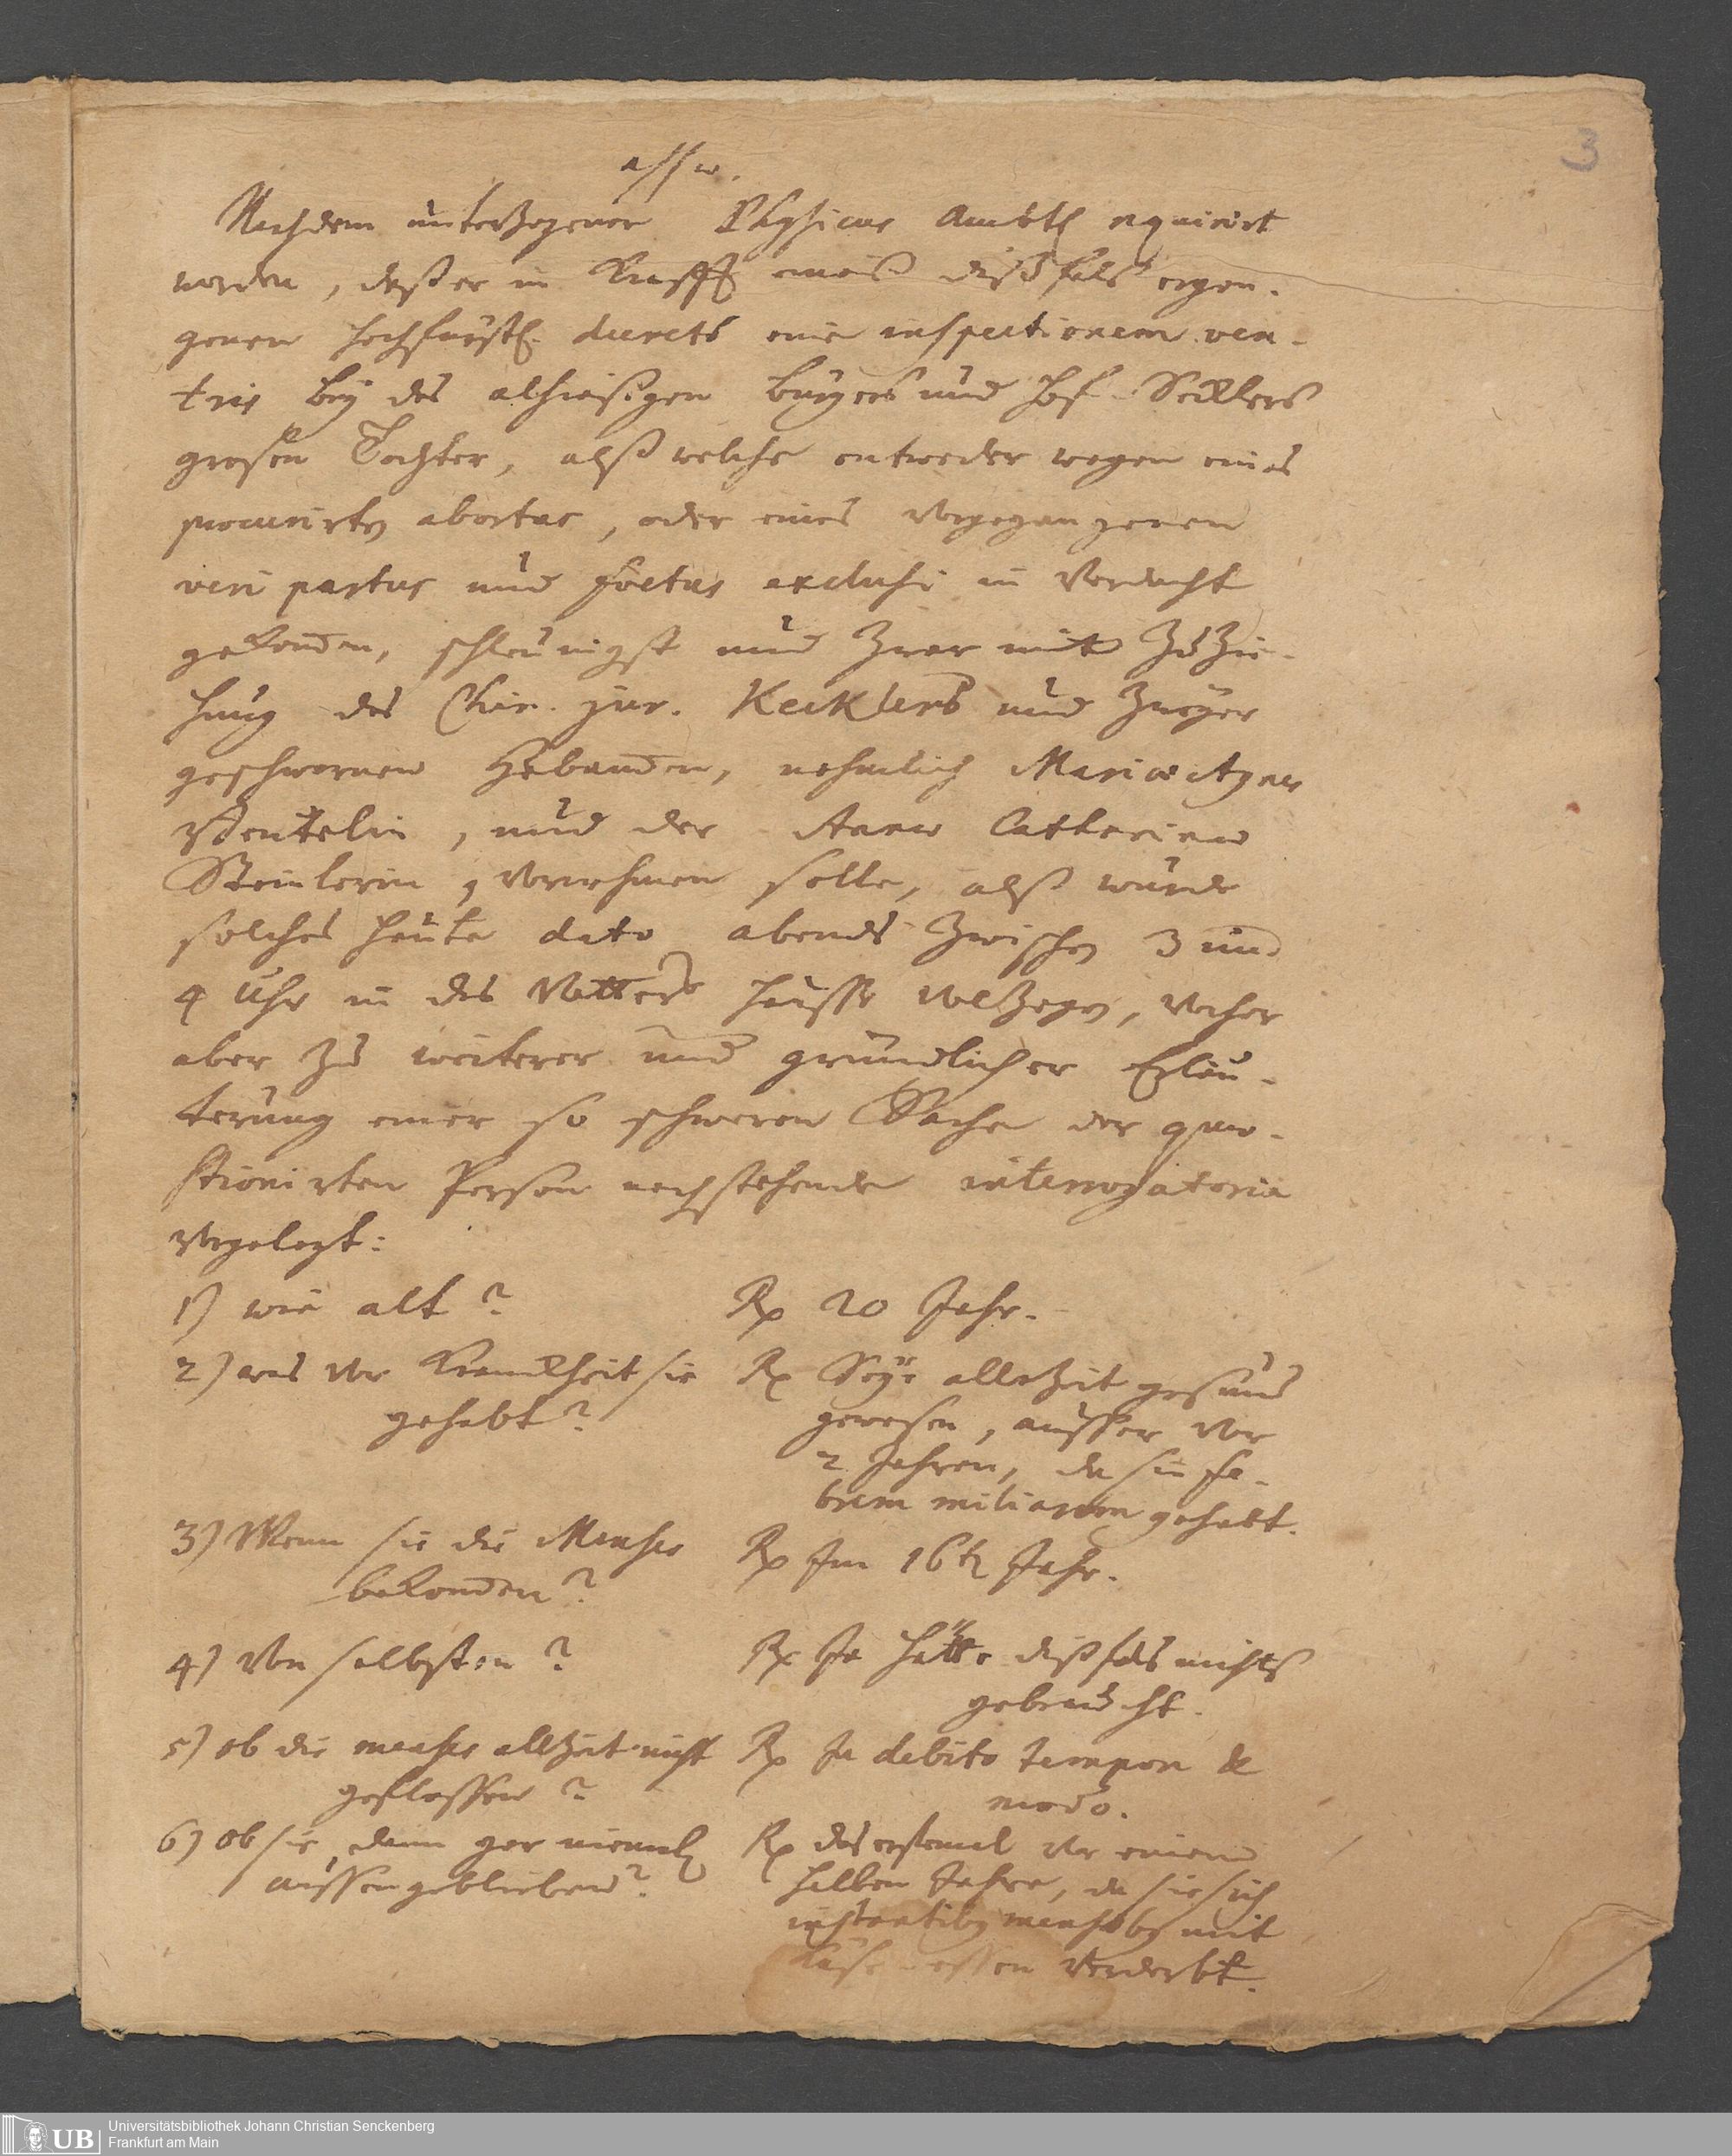 3
Nachdem unterzogener Physicus Ambtl requirirt
worden, daß er in Krafft eines dißfals ergan-
genen hochfürstl. decrets eine inspectionem ven-
tris bey des alhießigen burgers und Hof-Sattlers
großen Tochter, alß welche entweder wegen eines
procurirten abortus, oder eines vorgegangenen
veri partus und foetus exclusi in Verdacht
gekomen, schleunigst und zwar mit Zuzie-
hung des Chir. jur. Kecklers und zweyer
geschwornen Hebamen, nehmlich Mariae Agnes
, und der Anna Catharina
Steinlerin, vornehmen solle, alß wurde
solches heute dato abends zwischen 3 und
4 Uhr in des Vatters Hausse vollzogen, vorher
aber zu weiterer und gründlicher Erläu-
terung einer so schweren Sache der quae-
stionirten Person nachstehende interrogatoria
vorgelegt:
1) wie alt? Rp 20 Jahr.
2) was vor Kranckheit sie
gehabt?
Rp Seye allezeit gesund
gewesen, ausser vor
2 Jahren, da sie fe-
brem miliarem gehabt.
3) Wenn sie die Menses
bekomen?
Rp Im 16ten Jahr.
4) Von selbsten?
Rp Ja hätte dißfals nichts
gebraucht.
5) ob die menses allezeit nicht
geflossen?
Rp Ja debito tempore &
modo.
6) Ob sie dann gar niemals
aussengeblieben?
Rp das erstemal vor einem
halben Jahre, da sie sich
instantibus mensibus mit
essen verderbt.
Universitätsbibliothek Johann Christian Senckenberg
UB Frankfurt am Main